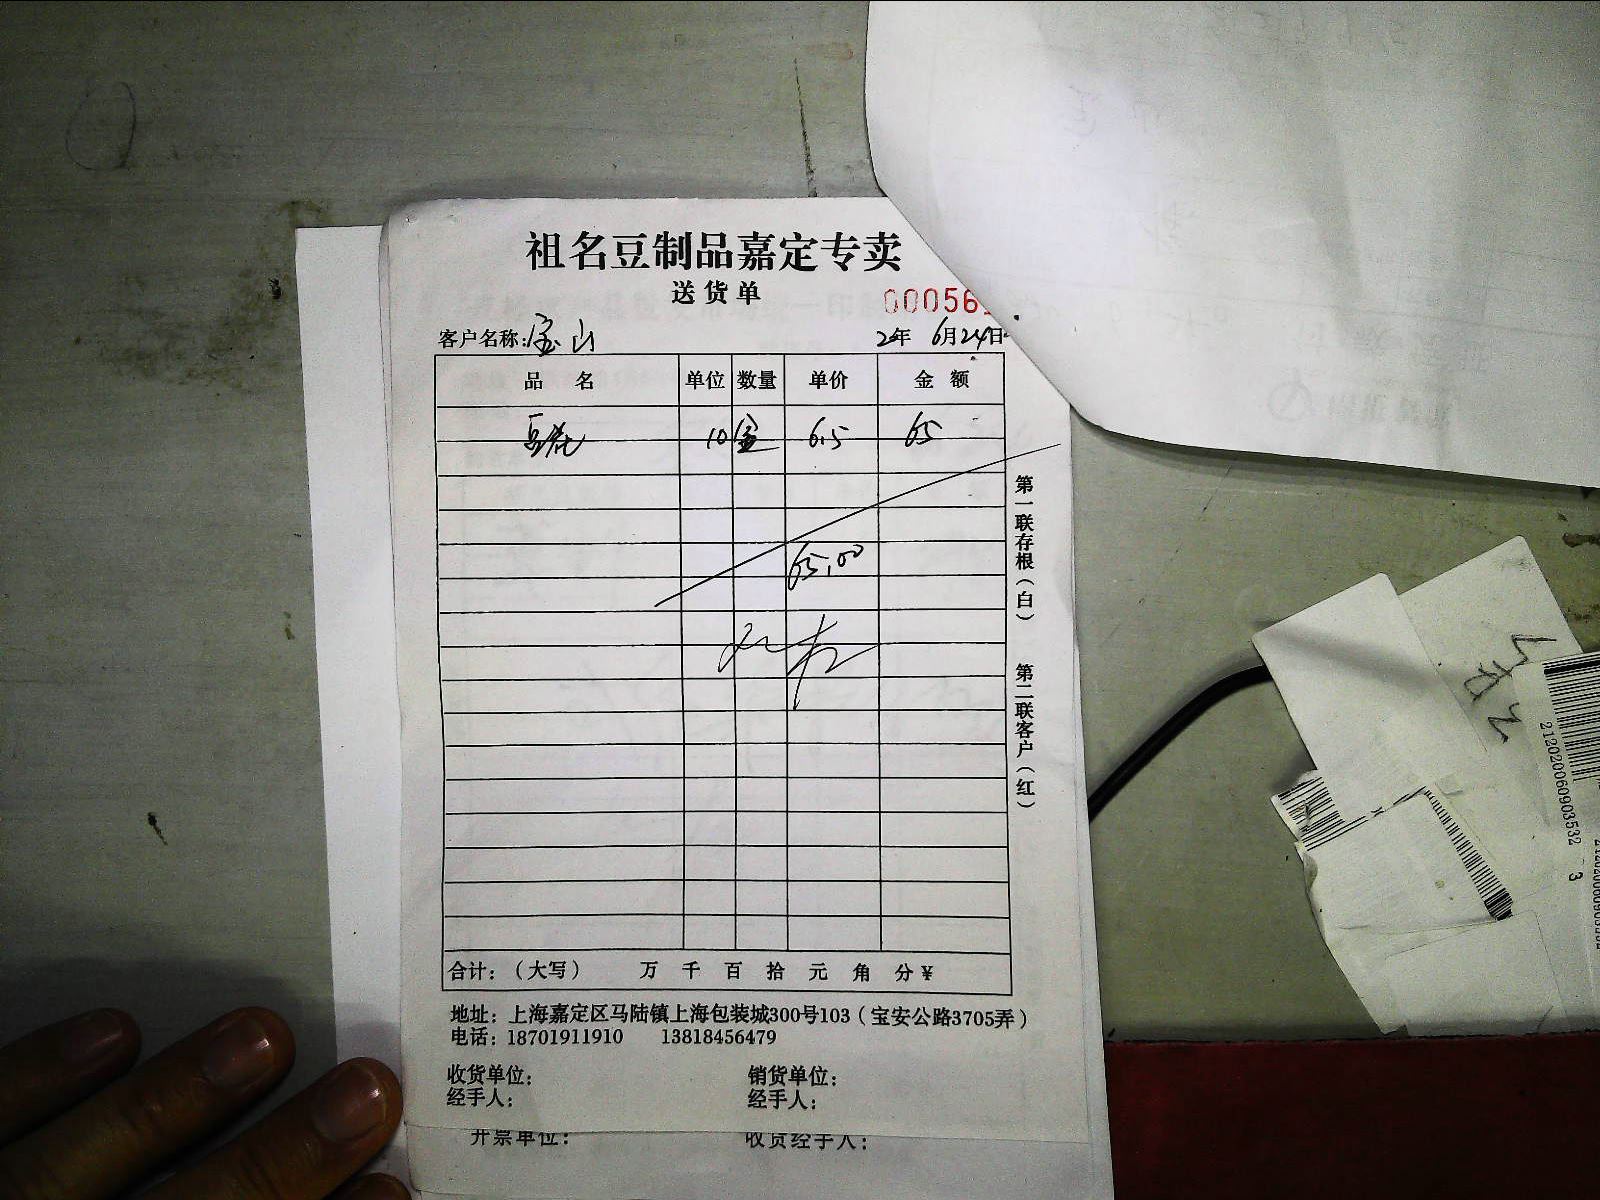 祖名豆制品嘉定专卖
送货单
00056
客户名称:宝山 2年 6月24日
品 名 单位 数量 单价 金 额
豆花 10 盒 6.5 65
65.00
合计:(大写) 万 千 百 拾 元 角 分 ¥
地址:上海嘉定区马陆镇上海包装城300号103(宝安公路3705弄)
电话:18701911910 13818456479
收货单位: 销货单位:
经手人: 经手人:
开票单位: 收货经手人:
第一联存根(白)
第二联客户(红)
212020060903532 3